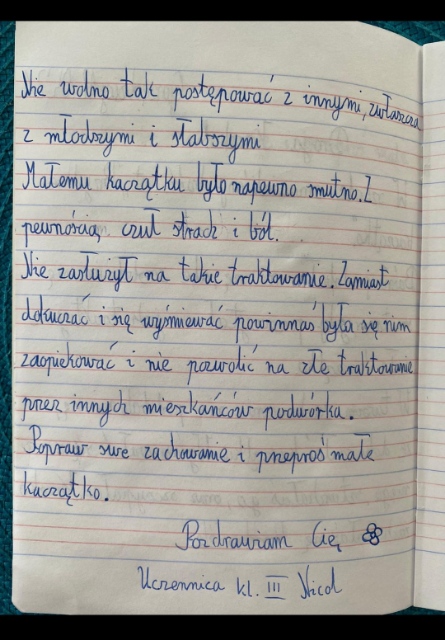 Nie wolno tak postępować z innymi, zwłaszcza
z młodszymi i słabszymi
Małemu kaczątku było napewno smutno. Z
pewnością czuł strach i ból.
Nie zasłużył na takie traktowanie. Zamiast
dokuczać i się wyśmiewać powinnaś była się nim
zaopiekować i nie pozwolić na złe traktowanie
przez innych mieszkańców podwórka.
Popraw swe zachowanie i przeproś małe
kaczątko.
Pozdrawiam Cię
Uczennica kl. III Nicol